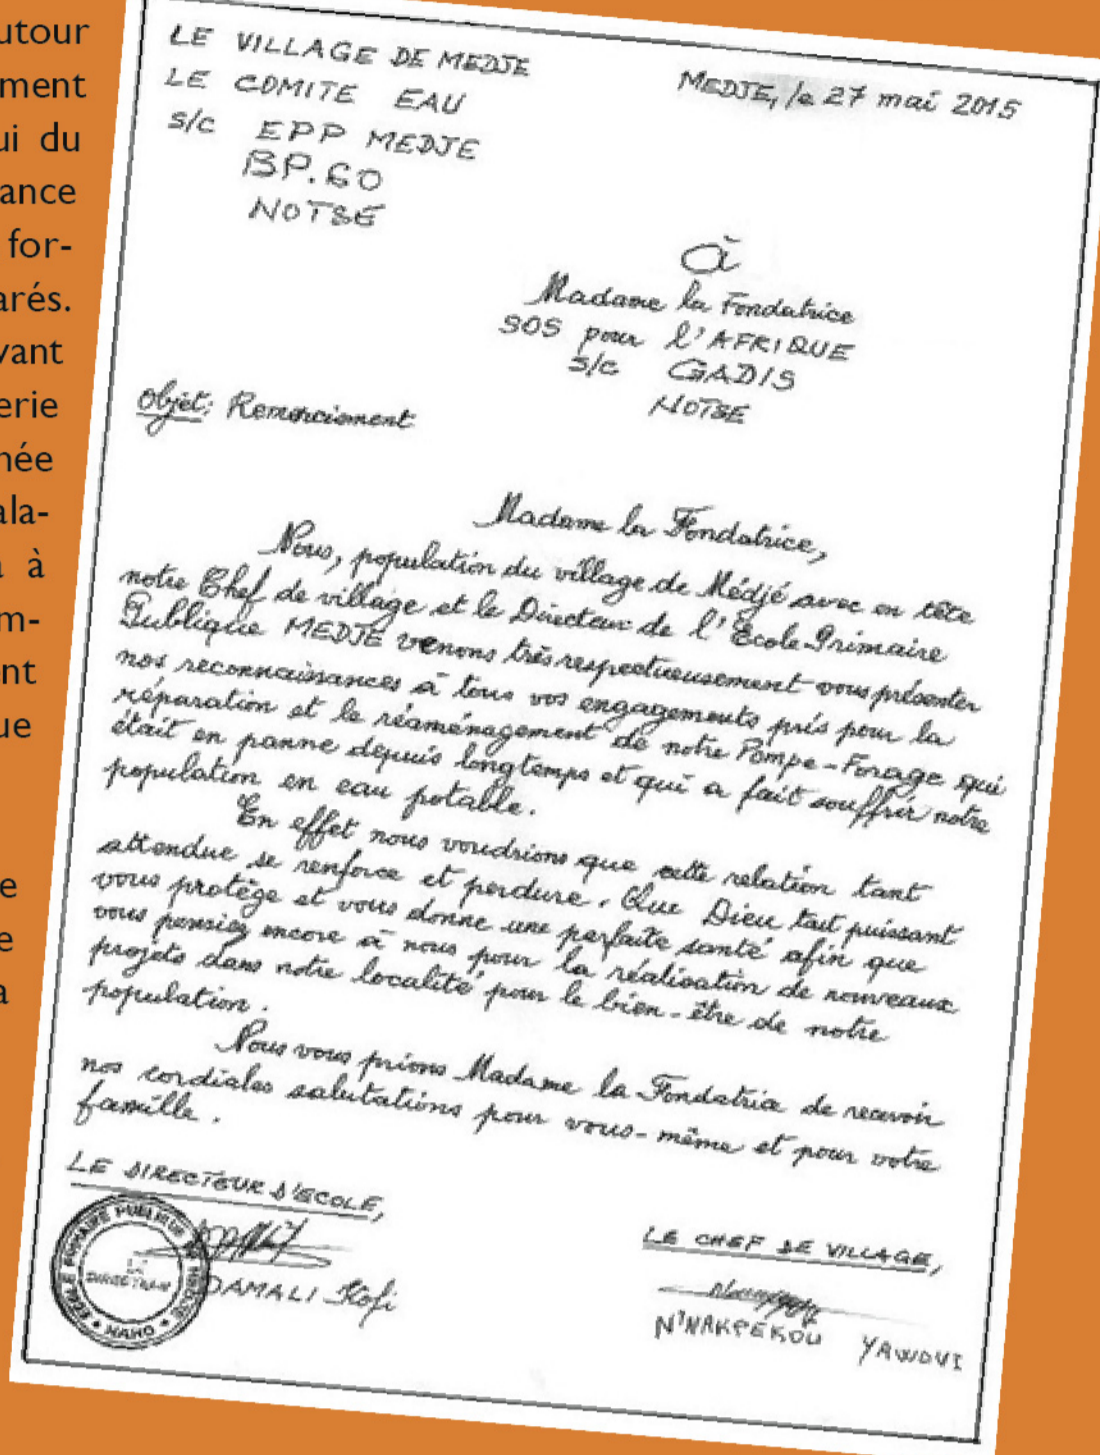 utour
ment
ui du
ance
for-
arés.
vant
erie
née
ala-
à
m-
ent
ue
e
e
a
LE VILLAGE DE MEDJE
LE COMITE EAU
s/c EPP MEDJE
BP.60
NOTSE
MEDJE, le 27 mai 2015
à
Madame la Fondatrice
SOS pour l'AFRIQUE
s/c GADIS
NOTSE
Objet: Remerciement
Madame la Fondatrice,
Nous, population du village de Médjé avec en tête
notre Chef de village et le Directeur de l'École Primaire
Publique MEDJE venons très respectueusement vous présenter
nos reconnaissances à tous vos engagements pris pour la
réparation et le réaménagement de notre Pompe-Forage qui
était en panne depuis longtemps et qui a fait souffrir notre
population en eau potable.
En effet nous voudrions que cette relation tant
attendue se renforce et perdure. Que Dieu tout puissant
vous protège et vous donne une parfaite santé afin que
vous pensiez encore à nous pour la réalisation de nouveaux
projets dans notre localité pour le bien-être de notre
population.
Nous vous prions Madame la Fondatrice de recevoir
nos cordiales salutations pour vous-même et pour votre
famille.
LE DIRECTEUR D'ECOLE,
ECOLE PRIMAIRE PUBLIQUE
LE
DIRECTEUR
HAHO
DAMALI Kofi
LE CHEF DE VILLAGE,
N'NAKPEKOU YAWOVI